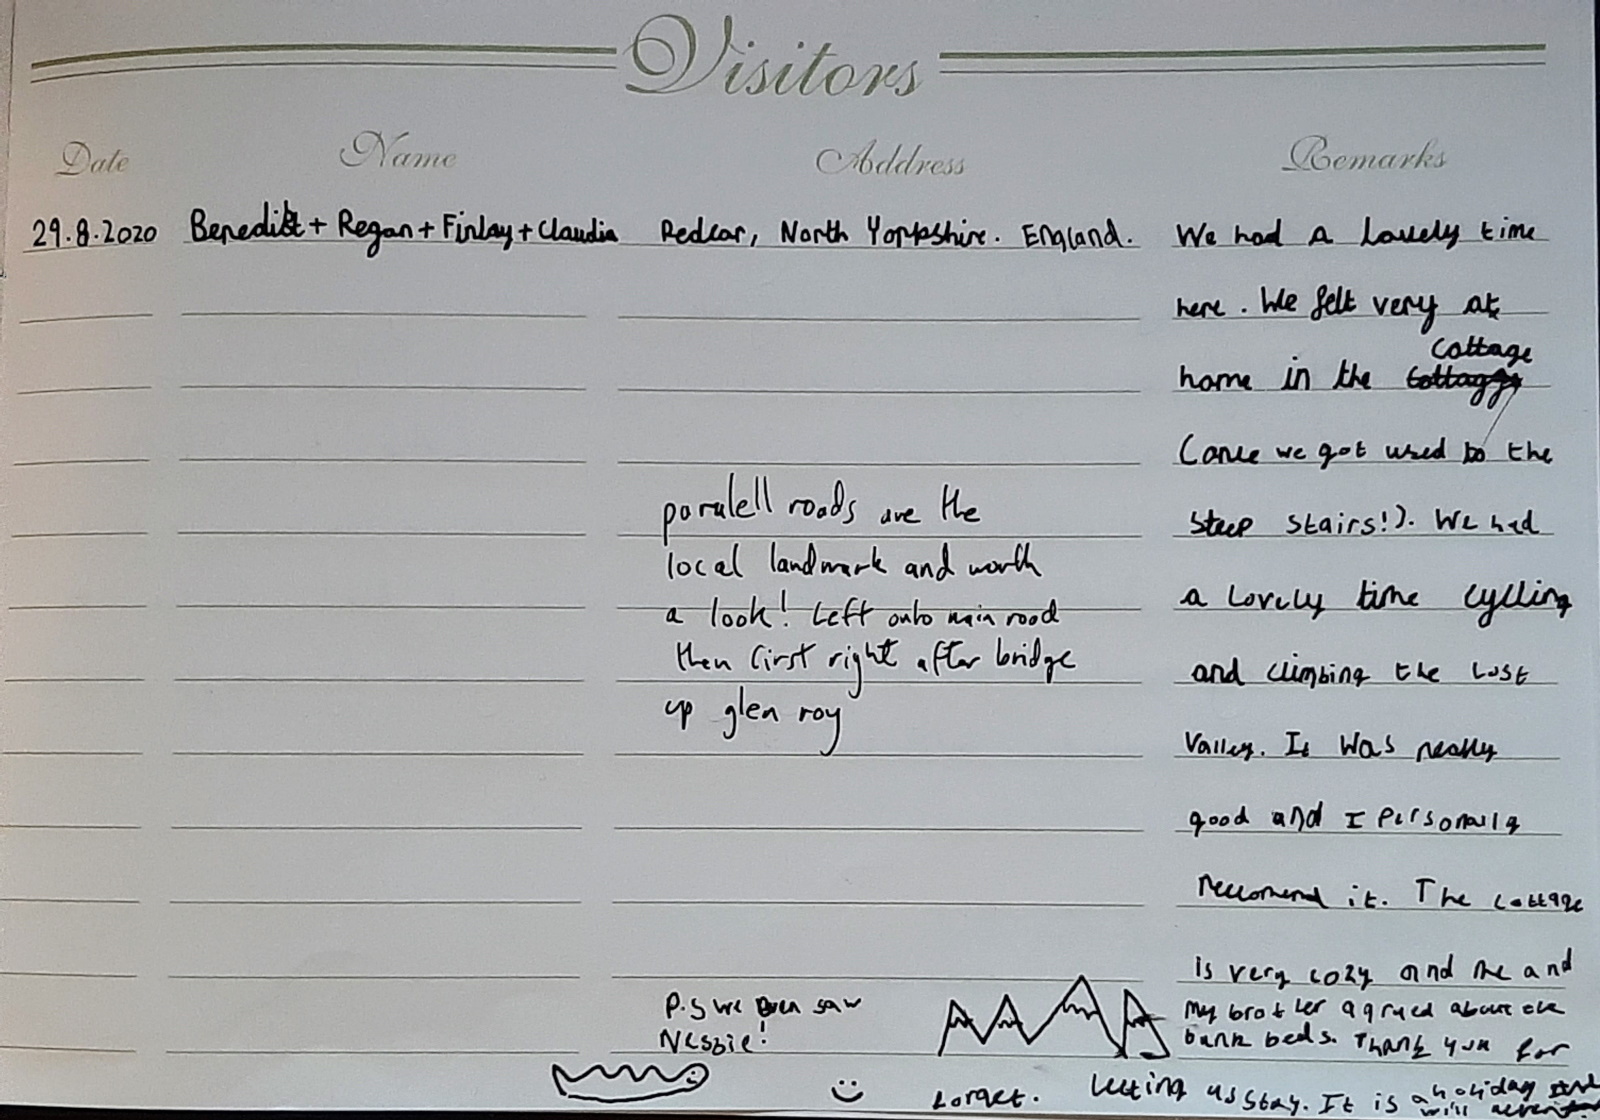 Visitors
Date Name Address Remarks
29.8.2020 Benedikt + Regan + Finlay + Claudia Redcar, North Yorkshire. England. We had a lovely time
here. We felt very at
cottage
home in the
(once we got used to the
steep stairs!). We had
a lovely time cycling
and climbing the Lost
Valley. It was really
good and I personally
reccomend it. The cottage
is very cozy and me and
my brother agrued about the
bunk beds. Thank you for
letting us stay. It is a holiday
will
forget.
paralell roads are the
local landmark and worth
a look! Left onto main road
then first right after bridge
up glen roy
P.S we even saw
Nessie!